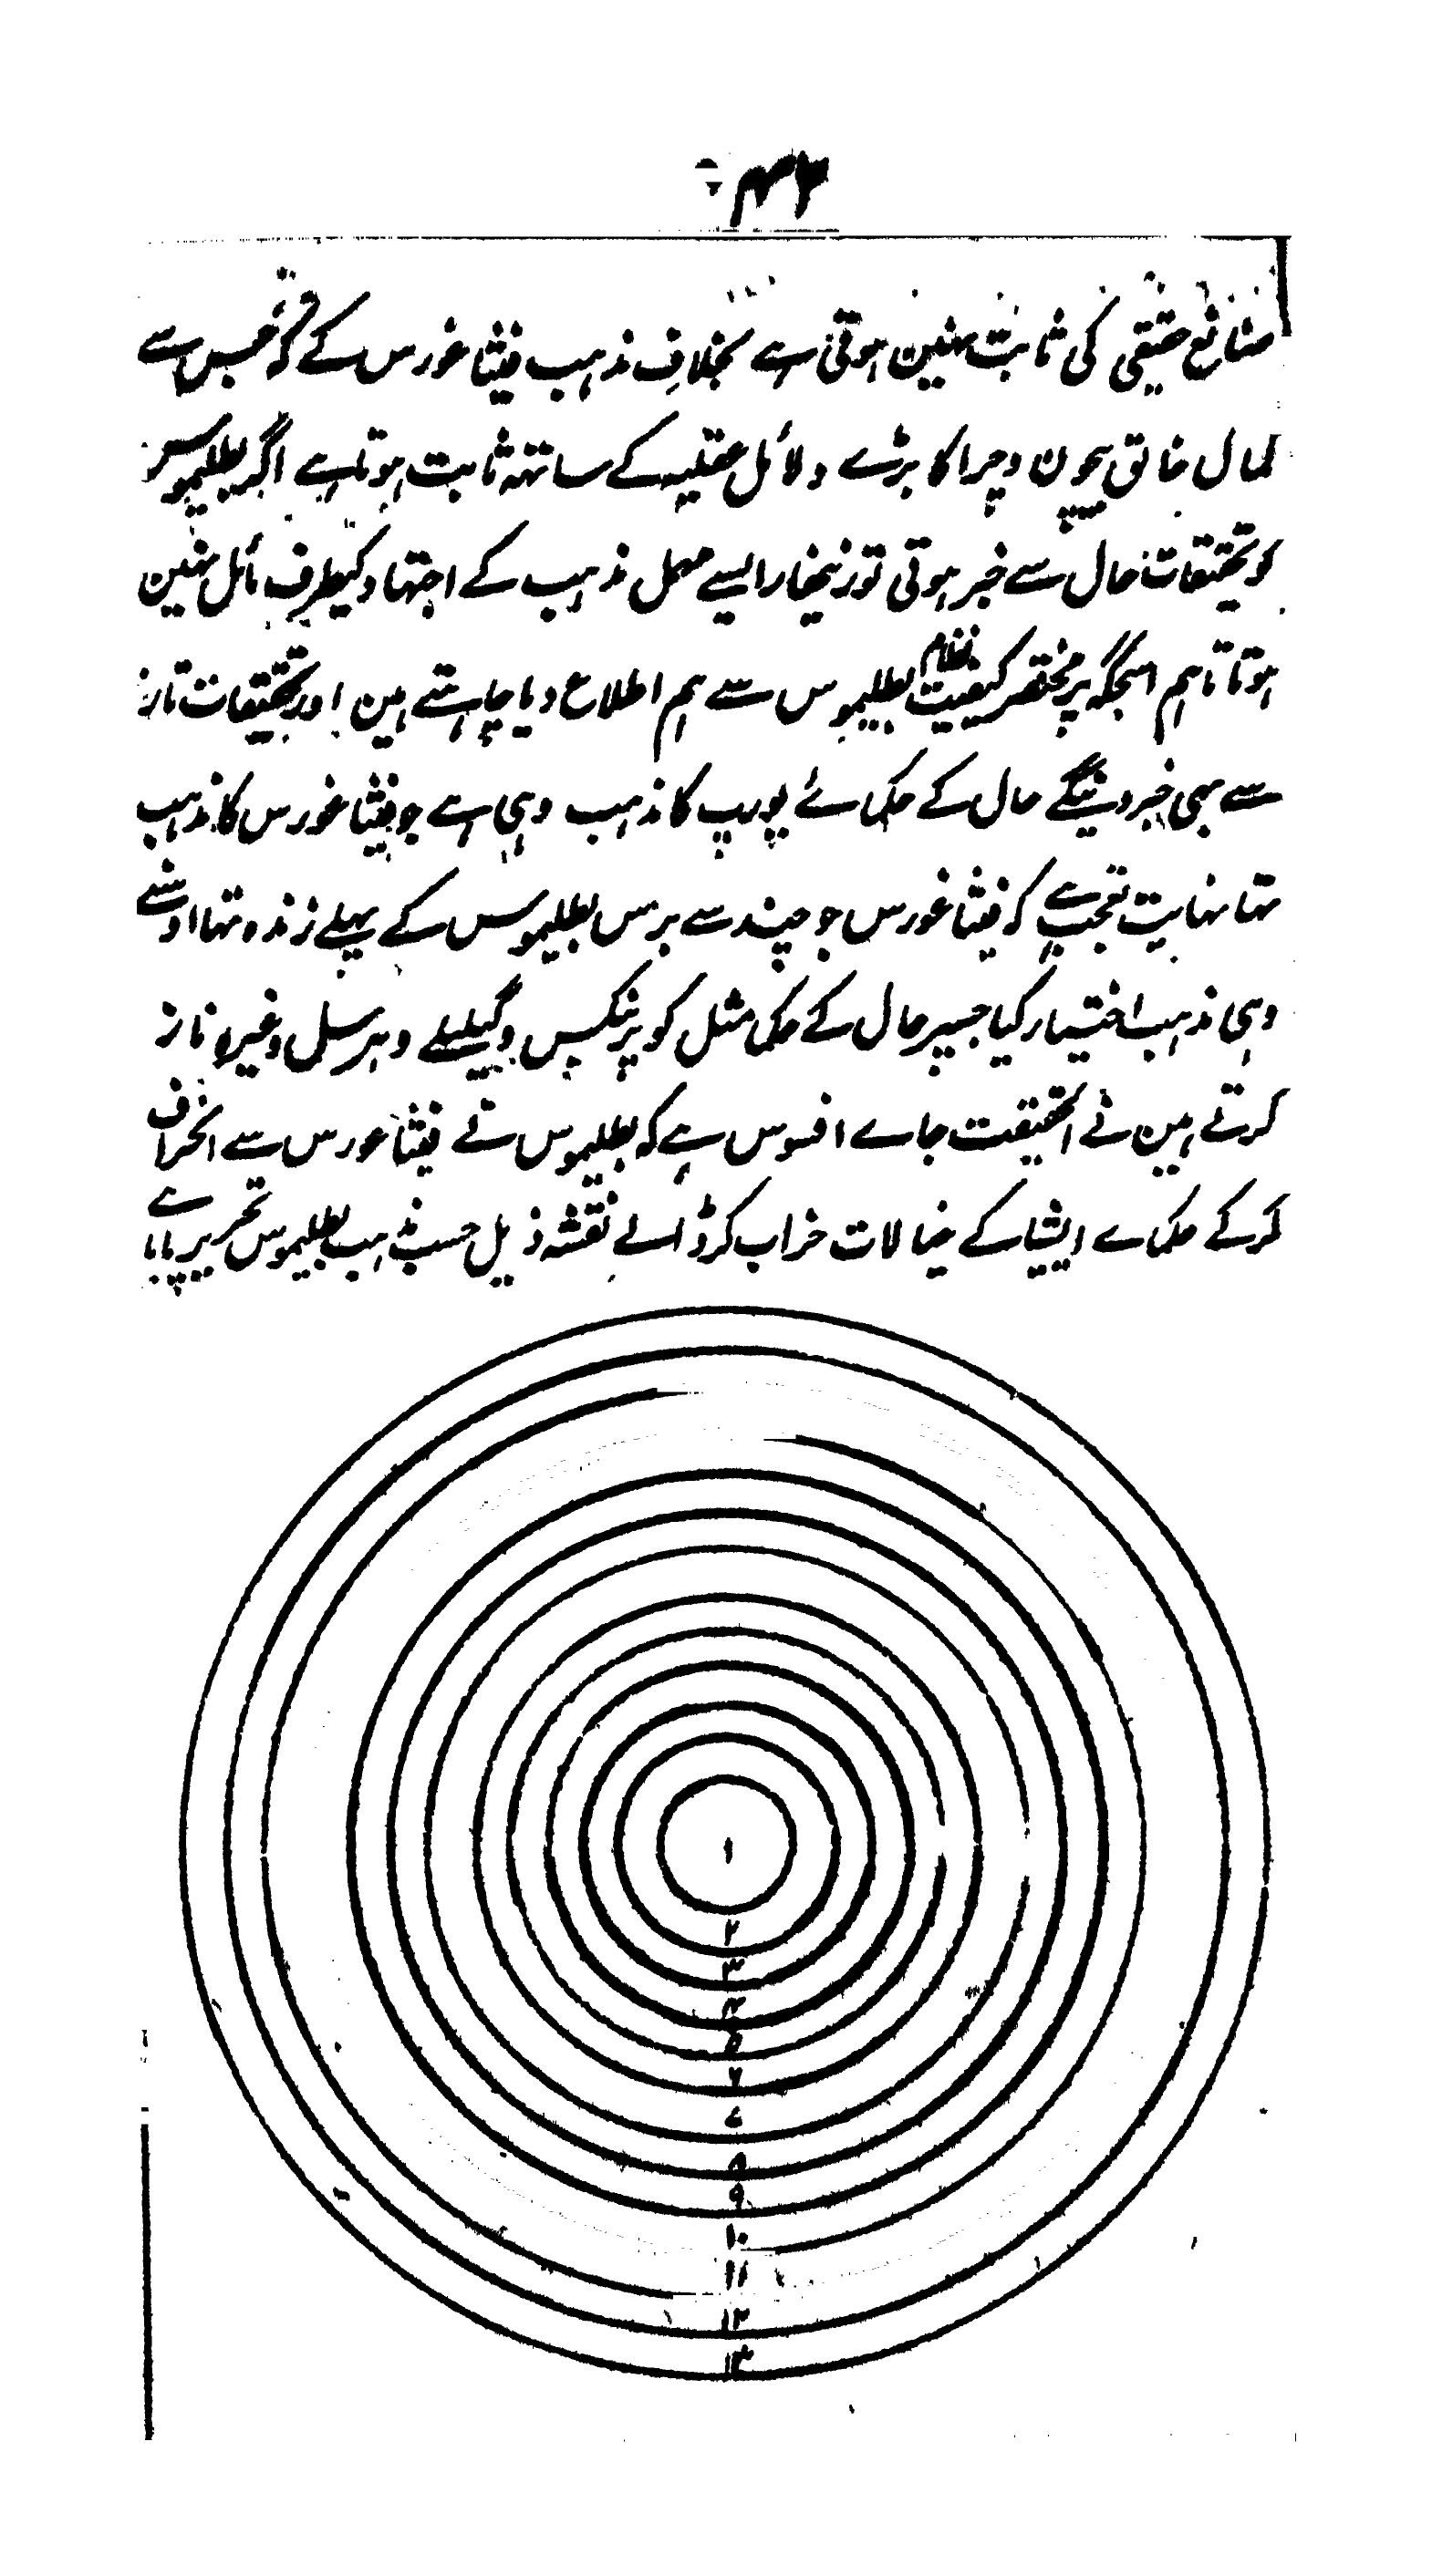 صانع حقیقی کی ثابت نہین ہوتی ہے بخلافِ مذہب فیثاغورس کے کہ جس سے
کمال خالق بیچون وچرا کا بڑے دلائل عقلیہ کے ساتھہ ثابت ہوتا ہے اگر بطلیموس
کو تحقیقات حال سے خبر ہوتی تو زینہار ایسے مہمل مذہب کے اجتہاد کیطرف مائل نہین
ہوتا تاہم اسجگہ پر مختصر کیفیت نظام بطلیموس سے ہم اطلاع دیا چاہتے ہین اور تحقیقات تازہ
سے بھی خبر دینگے حال کے حکمائے یورپ کا مذہب وہی ہے جو فیثاغورس کا مذہب
تہا نہایت تعجب ہے کہ فیثاغورس جو چند سے برس بطلیموس کے پہلے زندہ تہا اوسنے
وہی مذہب اختیار کیا جسپر حال کے حکما مثل کوپرنکس وگیلیلے وہرسل وغیرہ ناز
کرتے ہین فی الحقیقت جاے افسوس ہے کہ بطلیموس نے فیثاغورس سے انحراف
کرکے حکماے ایشیا کے خیالات خراب کرڈالے نقشہ ذیل حسب مذہب بطلیموس تحریر پایا ہے
۱
۲
۳
۴
۵
۶
۷
۸
۹
۱۰
۱۱
۱۲
۱۳